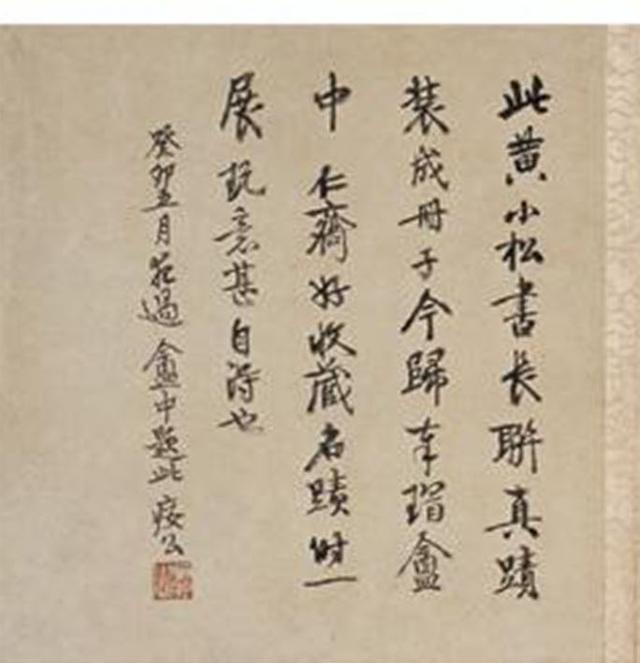 此黄小松書長聯真蹟
装成冊子今歸奉瑁盦
中 仁齋好收藏名蹟時一
展玩意甚自得也
癸卯五月花過盦中題此 瘦公